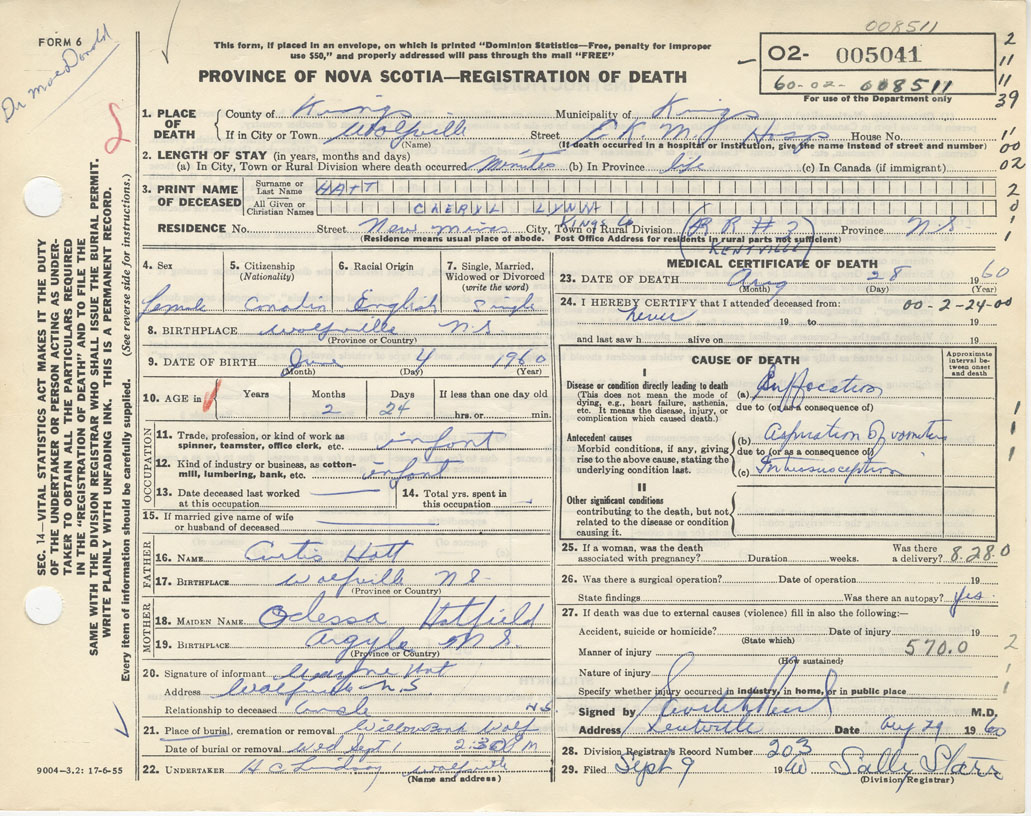 008511
FORM 6
Dr MacDonald
This form, if placed in an envelope, on which is printed "Dominion Statistics—Free, penalty for improper
use $50," and properly addressed will pass through the mail "FREE"
02- 005041
60-02- 008511
For use of the Department only
PROVINCE OF NOVA SCOTIA—REGISTRATION OF DEATH
2
11
11
39
1. PLACE OF DEATH
County of Kings Municipality of Kings
If in City or Town Wolfville Street E.K.M. Hosp House No.
(Name) (If death occurred in a hospital or institution, give the name instead of street and number)
11
00
02
2. LENGTH OF STAY (in years, months and days)
(a) In City, Town or Rural Division where death occurred Minutes (b) In Province life (c) In Canada (if immigrant)
3. PRINT NAME OF DECEASED
Surname or Last Name HATT
All Given or Christian Names CHERYL LYNN
2
0
1
1
RESIDENCE No. Street New Minas City, Town of Rural Division Kings Co (RR # 2 KENTVILLE) Province NS
(Residence means usual place of abode. Post Office Address for residents in rural parts not sufficient)
4. Sex female
5. Citizenship (Nationality) Canadian
6. Racial Origin English
7. Single, Married, Widowed or Divorced (write the word) Single
8. BIRTHPLACE Wolfville N.S.
(Province or Country)
9. DATE OF BIRTH June 4 1960
(Month) (Day) (Year)
10. AGE in Years Months 2 Days 24 If less than one day old hrs. or min.
OCCUPATION
11. Trade, profession, or kind of work as spinner, teamster, office clerk, etc. infant
12. Kind of industry or business, as cotton-mill, lumbering, bank, etc. infant
13. Date deceased last worked at this occupation
14. Total yrs. spent in this occupation
15. If married give name of wife or husband of deceased
FATHER
16. NAME Curtis Hatt
17. BIRTHPLACE Wolfville NS
(Province or Country)
MOTHER
18. MAIDEN NAME Odessa Hatfield
19. BIRTHPLACE Argyle N.S.
(Province or Country)
20. Signature of informant Wayne Hatt
Address Wolfville N.S.
Relationship to deceased Uncle
21. Place of burial, cremation or removal Willowbank Wolf N.S.
Date of burial or removal Wed Sept 1 2:30 PM
22. UNDERTAKER H C Lindsay Wolfville
(Name and address)
MEDICAL CERTIFICATE OF DEATH
23. DATE OF DEATH Aug 28 1960
(Month) (Day) (Year)
24. I HEREBY CERTIFY that I attended deceased from: 00-2-24-00
never 19 to 19
and last saw h alive on 19
CAUSE OF DEATH
Approximate interval between onset and death
I
Disease or condition directly leading to death
(This does not mean the mode of dying, e.g., heart failure, asthenia, etc. It means the disease, injury, or complication which caused death.)
(a) Suffocation
due to (or as a consequence of)
Antecedent causes
Morbid conditions, if any, giving rise to the above cause, stating the underlying condition last.
(b) Aspiration of vomitus
due to (or as a consequence of)
(c) Intussusception
1
1
1
II
Other significant conditions
contributing to the death, but not related to the disease or condition causing it.
25. If a woman, was the death associated with pregnancy? Duration weeks. Was there a delivery? 8.28.0
26. Was there a surgical operation? Date of operation 19
State findings Was there an autopsy? yes
27. If death was due to external causes (violence) fill in also the following:—
Accident, suicide or homicide? Date of injury 19
(State which)
Manner of injury 570.0 2
(How sustained)
Nature of injury 1
Specify whether injury occurred in industry, in home, or in public place
Signed by M.D.
Address Kentville Date Aug 29 1960
28. Division Registrar's Record Number 203
29. Filed Sept 9 1960 Sally Starr
(Division Registrar)
SEC. 14—VITAL STATISTICS ACT MAKES IT THE DUTY
OF THE UNDERTAKER OR PERSON ACTING AS UNDER-
TAKER TO OBTAIN ALL THE PARTICULARS REQUIRED
IN THE "REGISTRATION OF DEATH" AND TO FILE THE
SAME WITH THE DIVISION REGISTRAR WHO SHALL ISSUE THE BURIAL PERMIT.
WRITE PLAINLY WITH UNFADING INK. THIS IS A PERMANENT RECORD.
Every item of information should be carefully supplied. (See reverse side for instructions.)
9004—3.2: 17-6-55